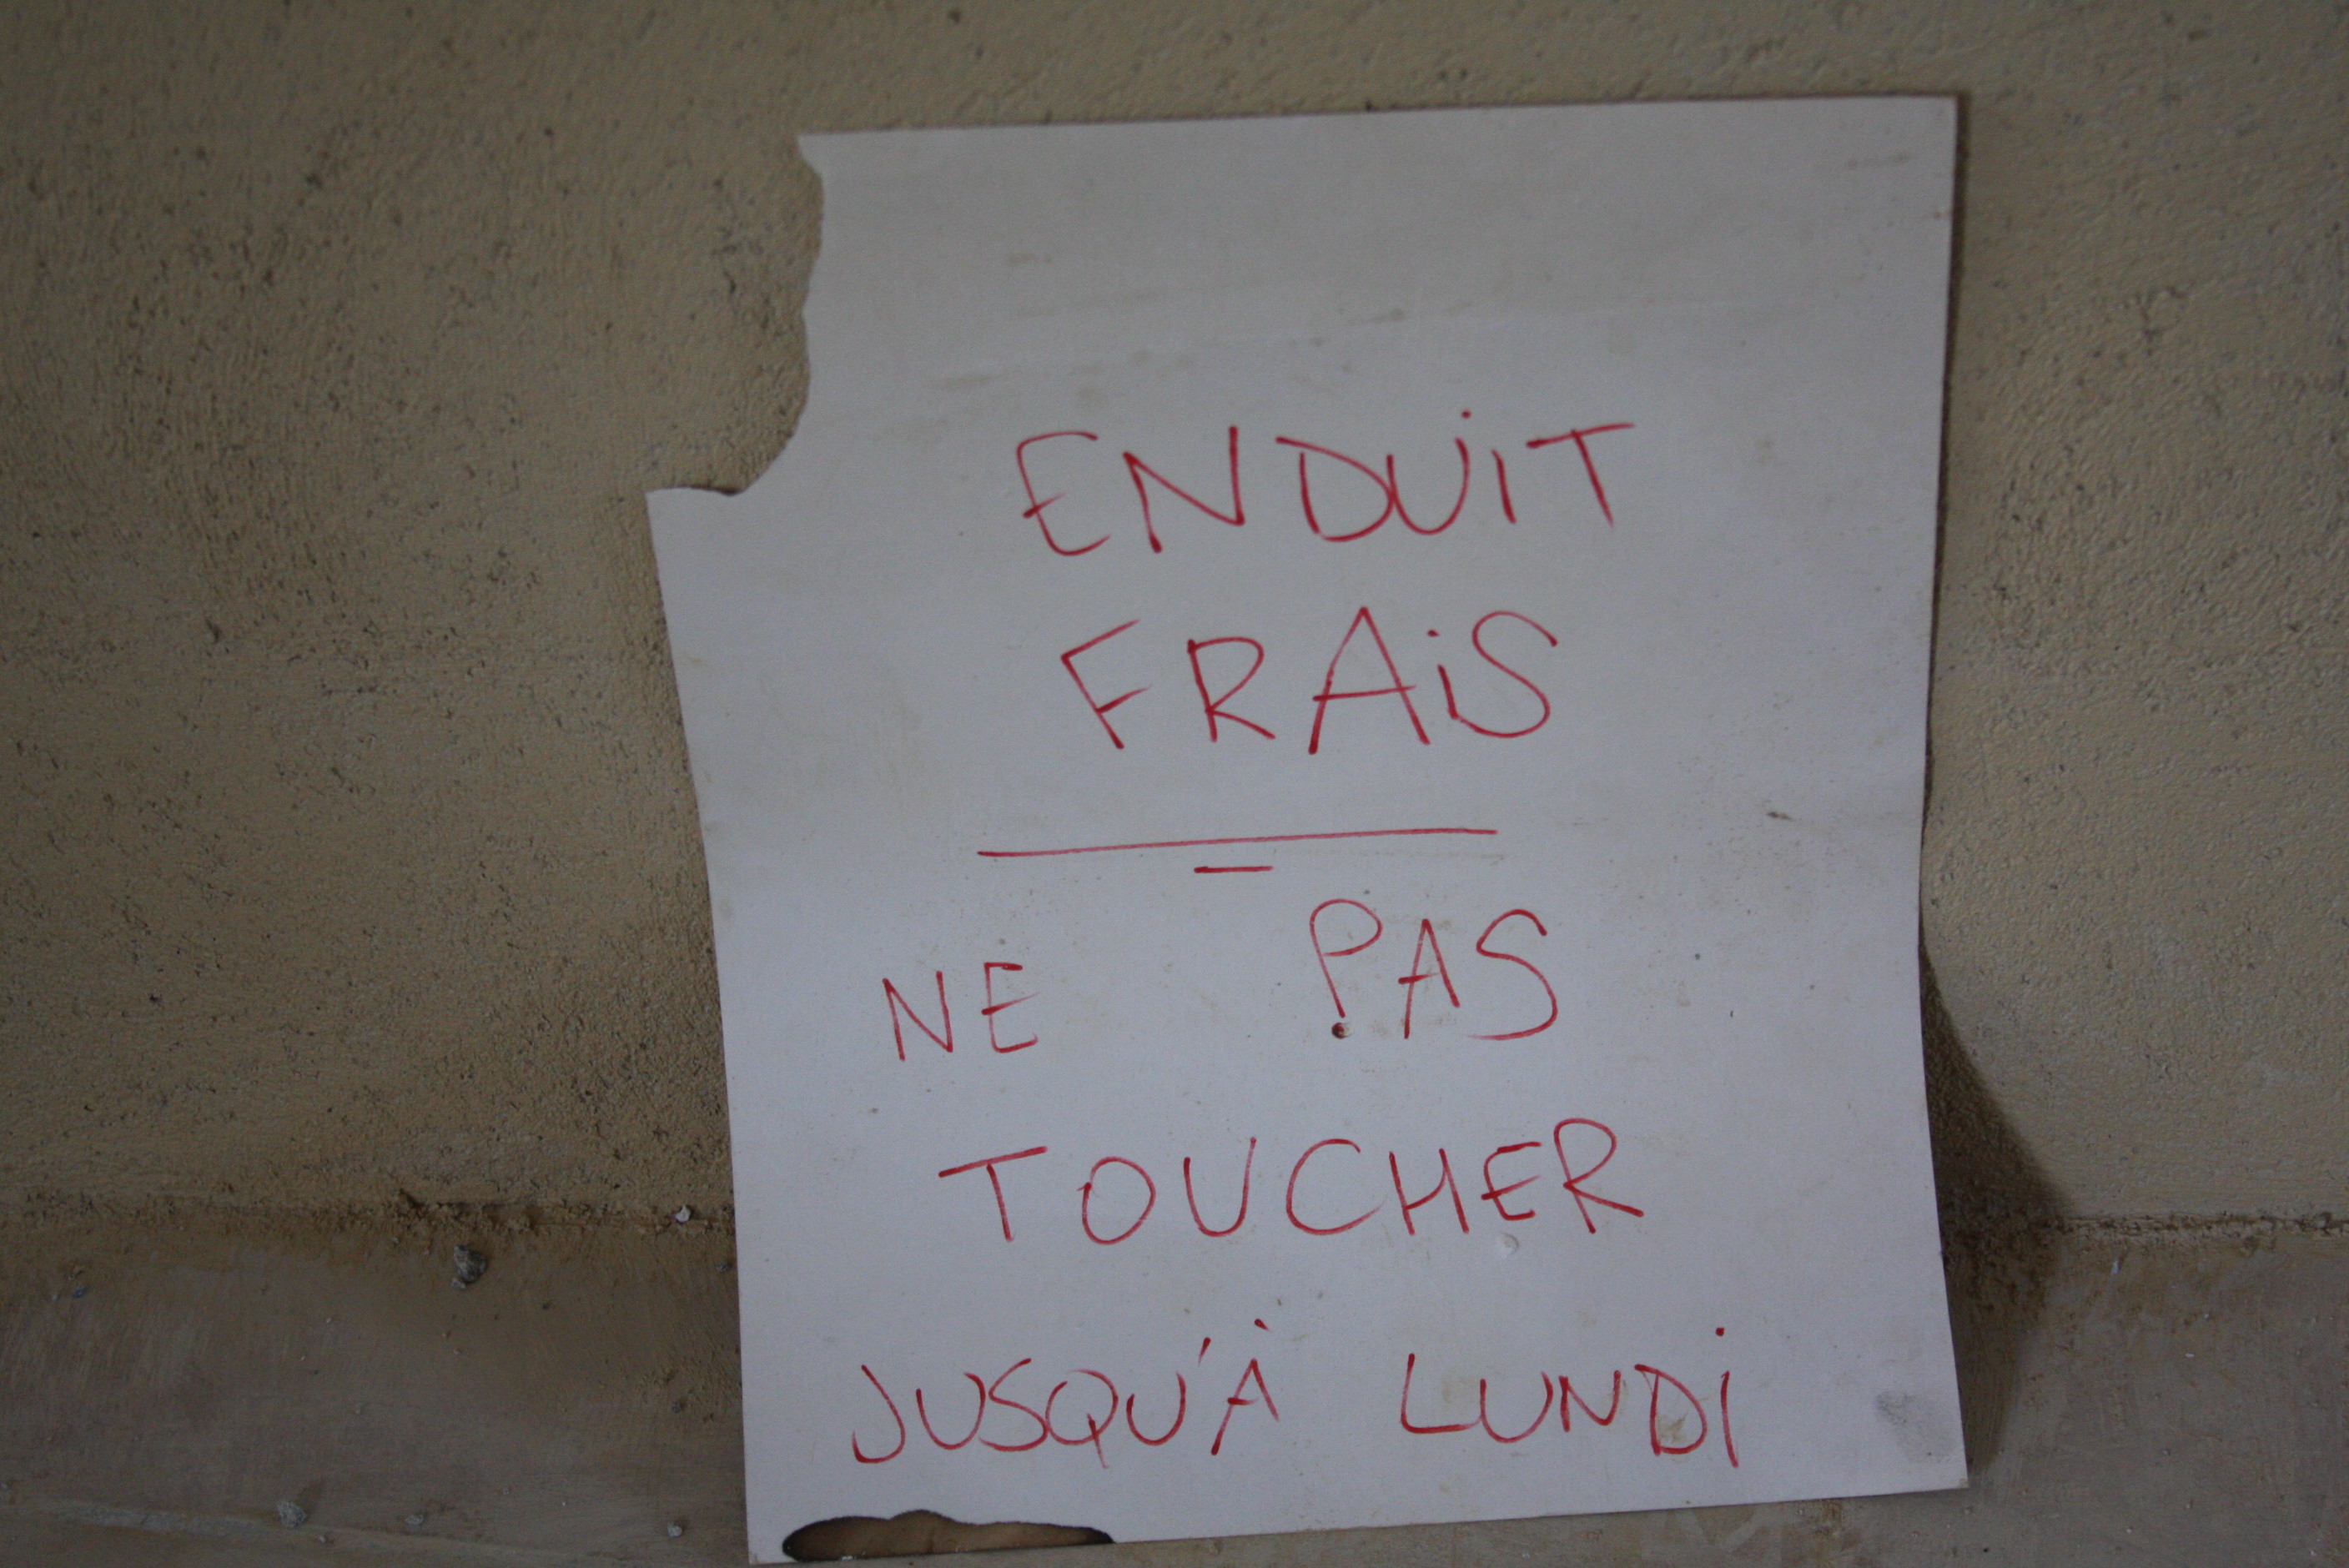 ENDUIT
FRAIS
NE PAS
TOUCHER
JUSQU'À LUNDI